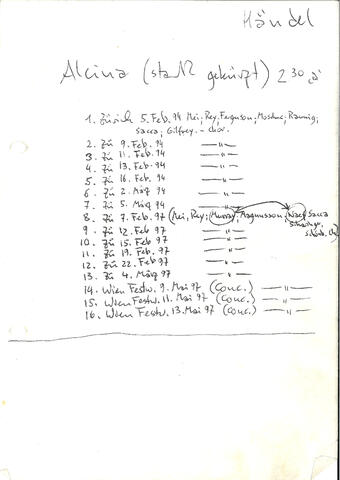 Händel
Alcina (stark gekürzt) 2 30
1. Zürich 5. Feb. 94 Mei, Rey, Ferguson,
Sacca; Gilfrey. -
2. Zü 9. Feb. 94 —"—
3. Zü 11. Feb. 94 —"—
4. Zü 13. Feb. 94 —"—
5. Zü 16. Feb. 94 —"—
6. Zü 2. März 94 —"—
7. Zü 5. März 94 —"—
8. Zü 7. Feb. 97 (Mei, Rey; Murray, Magnusson, Naef, Sacca
9. Zü 12. Feb 97 —"—
10. Zü 15. Feb 97 —"—
11. Zü 19. Feb 97 —"—
12. Zü 22. Feb 97 —"—
13. Zü 4. März 97 —"—
14. Wien Festw. 9. Mai 97 (Conc.) —"—
15. Wien Festw. 11. Mai 97 (Conc.) —"—
16. Wien Festw. 13. Mai 97 (Conc.) —"—